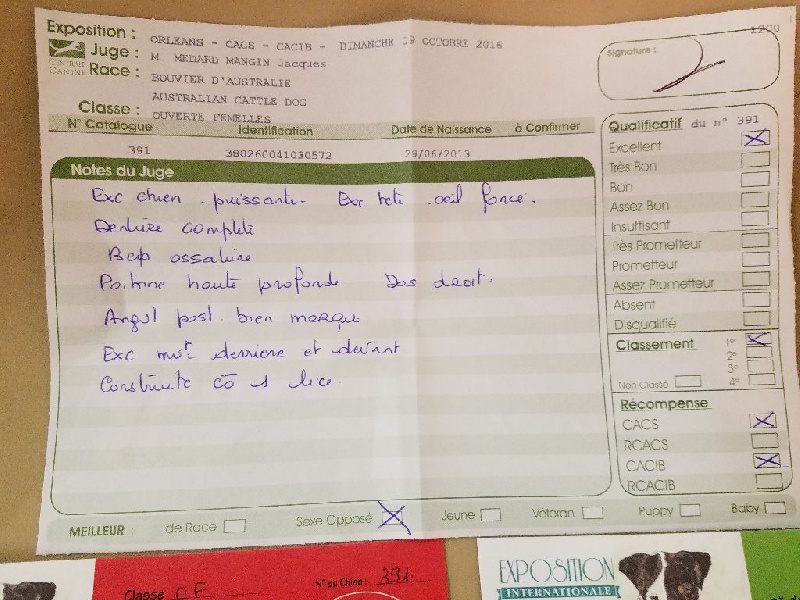 1200
Exposition : ORLEANS - CACS - CACIB - DIMANCHE 09 OCTOBRE 2016
Juge : M. MEDARD MANGIN Jacques
CENTRALE CANINE
Race : BOUVIER D'AUSTRALIE
AUSTRALIAN CATTLE DOG
Classe : OUVERTE FEMELLES
Signature :
N° Catalogue Identification Date de Naissance à Confirmer
391 380260041030572 29/06/2013
Notes du Juge
Exc chien puissante. Exc tete oeil foncé.
Denture complete
Bcp ossature
Poitrine haute profonde Dos droit.
Angul post. bien marqué
Exc mvt derriere et devant
Construite cõ 1 lice
Qualificatif du n° 391
Excellent
Très Bon
Bon
Assez Bon
Insuffisant
Très Prometteur
Prometteur
Assez Prometteur
Absent
Disqualifié
Classement 1er
2e
3e
Non Classé 4e
Récompense
CACS
RCACS
CACIB
RCACIB
MEILLEUR : de Race Sexe Opposé Jeune Vétéran Puppy Baby
Classe OF N° du Chien : 391
EXPOSITION
INTERNATIONALE